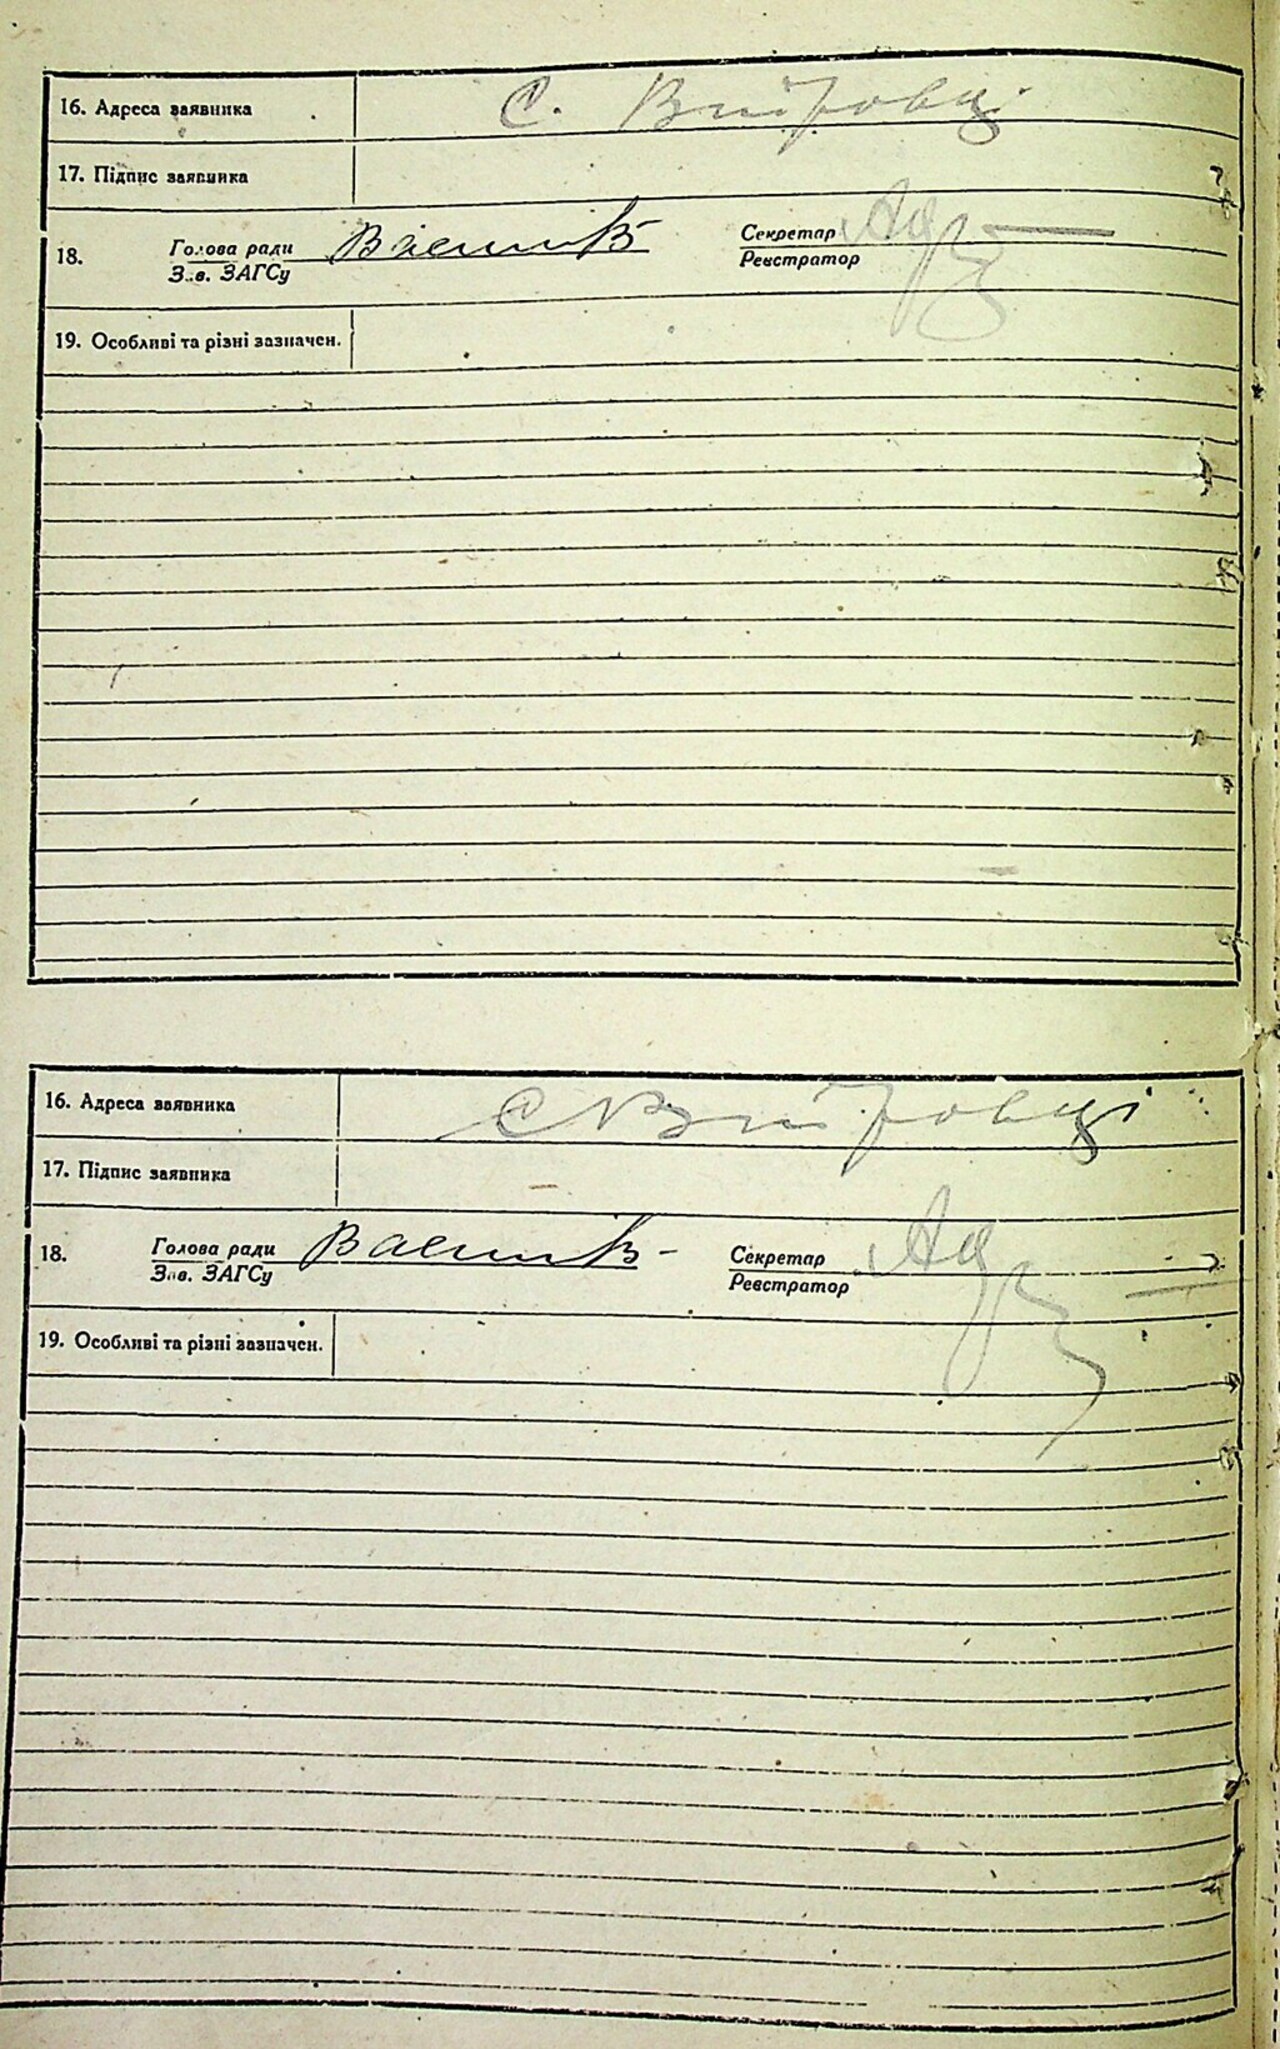 16. Адреса заявника С. Вітровці
17. Підпис заявника
18. Голова ради Секретар
Зав. ЗАГСу Реєстратор
19. Особливі та різні зазначен.
16. Адреса заявника С Вітровці
17. Підпис заявника
18. Голова ради Секретар
Зав. ЗАГСу Реєстратор
19. Особливі та різні зазначен.